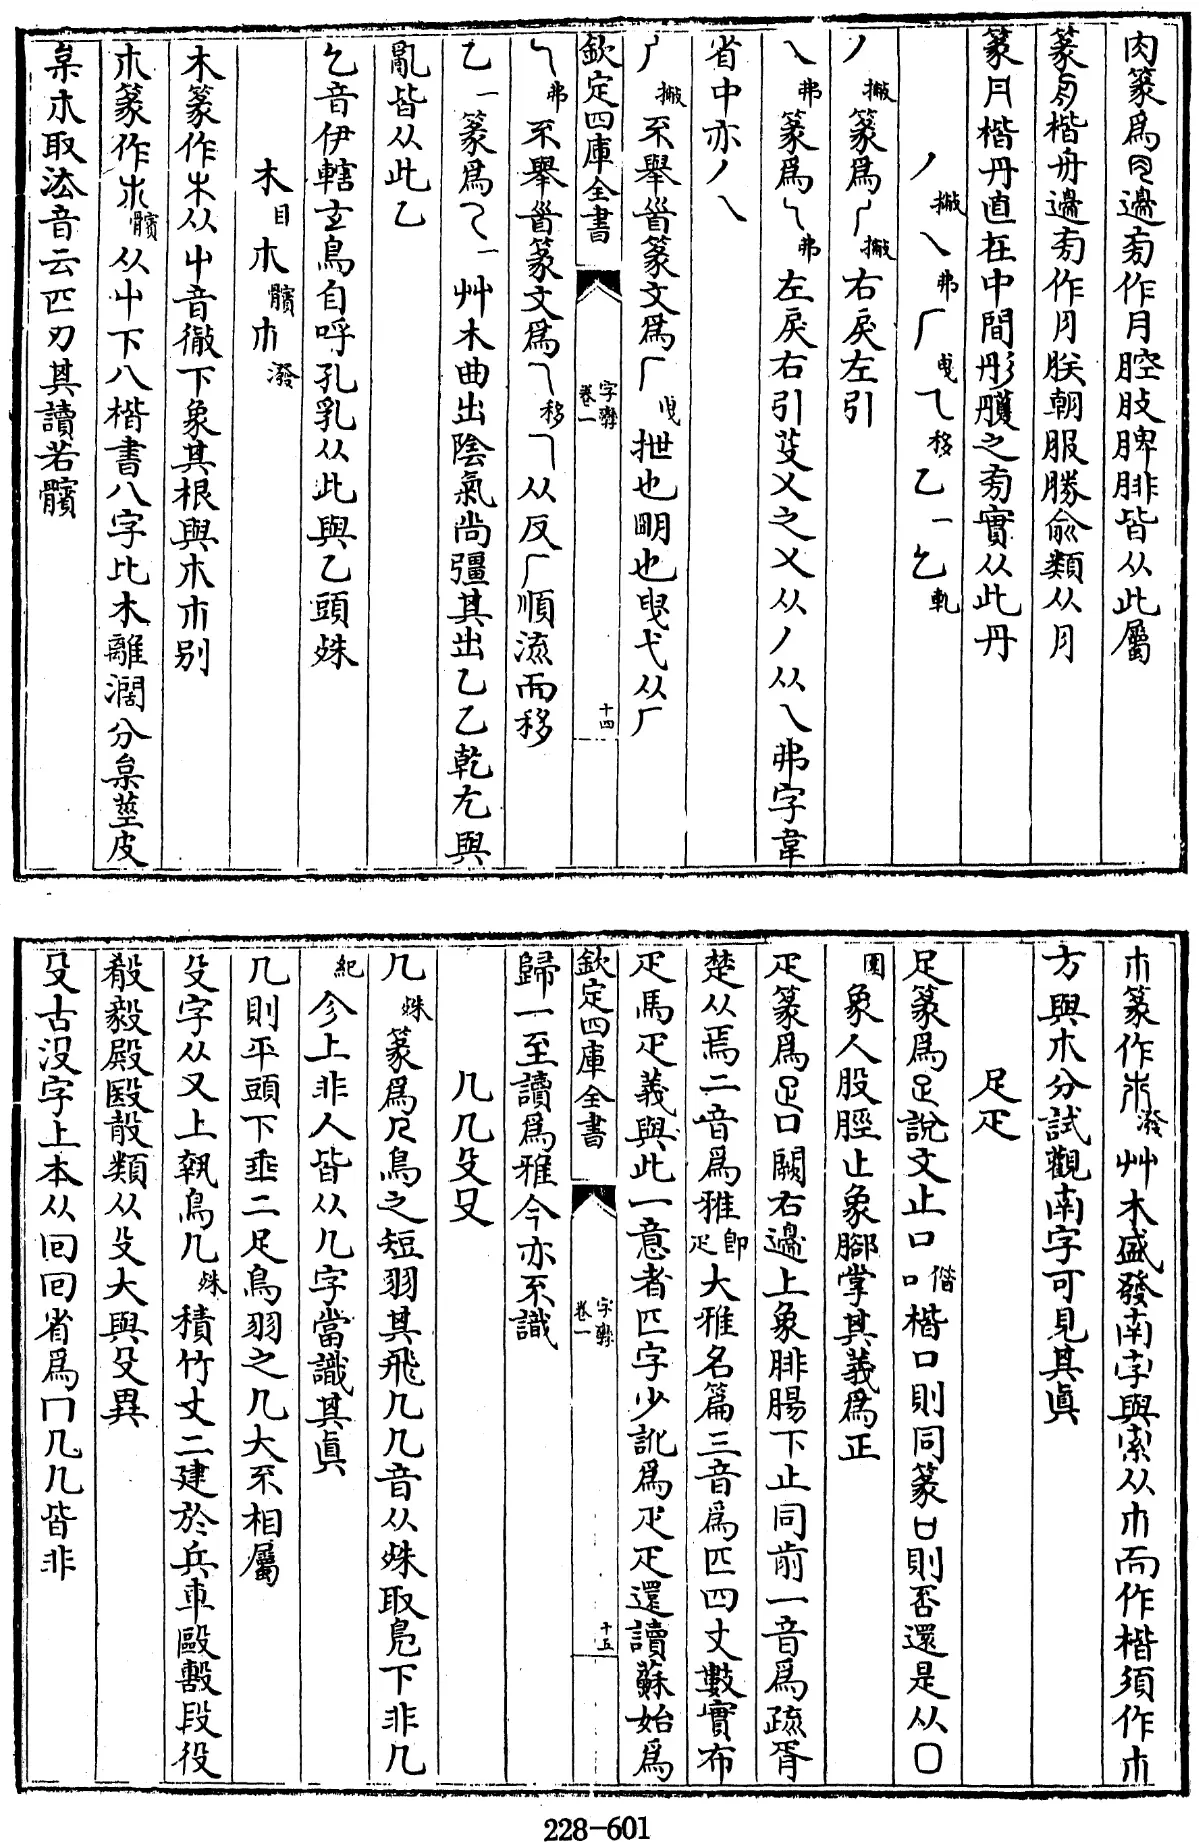 肉篆爲⺼邊旁作月腔肢脾腓皆从此屬
篆楷舟邊旁作月朕朝服勝俞類从月
篆丹楷丹直在中間彤雘之旁實从此丹
丿撇乀弗𠂆曳乁移乙一乞軋
丿撇篆爲撇右戾左引
乀弗篆爲弗左戾右引芟乂之乂从丿从乀弗字韋
省中亦丿乀
𠂆撇不舉首篆文爲𠂆曳抴也明也曳弋从𠂆
欽定四庫全書
字鑒
卷一
十四
乁弗不舉首篆文爲乁移乁从反𠂆順流而移
乙一篆爲乙一艸木曲出陰氣尚彊其出乙乙乾尤與
亂皆从此乙
乞音伊轄玄鳥自呼孔乳从此與乙頭殊
木目朩髕巿潑
木篆作木从屮音徹下象其根與朩巿別
朩篆作髕从屮下八楷書八字比木離濶分枲莖皮
枲朩取法音云匹刃其讀若髕
巿篆作潑艸木盛發南字與索从巿而作楷須作巿
方與朩分試觀南字可見其眞
足疋
足篆爲足說文止口口偕楷口則同篆口則否還是从囗
圍象人股脛止象腳掌其義爲正
疋篆爲疋口闕右邊上象腓腸下止同前一音爲疏胥
楚从焉二音爲雅卽疋大雅名篇三音爲匹四丈數實布
疋馬疋義與此一意者匹字少訛爲疋疋還讀蘇始爲
欽定四庫全書
字鑒
卷一
十五
歸一至讀爲雅今亦不識
𠘧几殳𠬛
𠘧殊篆爲𠘧鳥之短羽其飛𠘧𠘧音从殊取鳧下非几
紀今上非人皆从几字當識其眞
几則平頭下垂二足鳥羽之𠘧大不相屬
殳字从又上執鳥𠘧殊積竹丈二建於兵車毆毄段役
殺毅殿毉骰類从殳大與𠬛異
𠬛古沒字上本从囘囘省爲冂𠘧几皆非
228-601